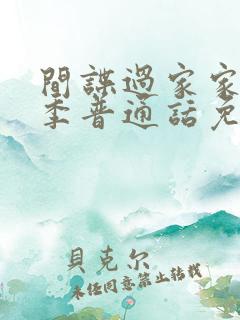 間諜過家家
季普通話免
貝克尔
未经同意禁止转载